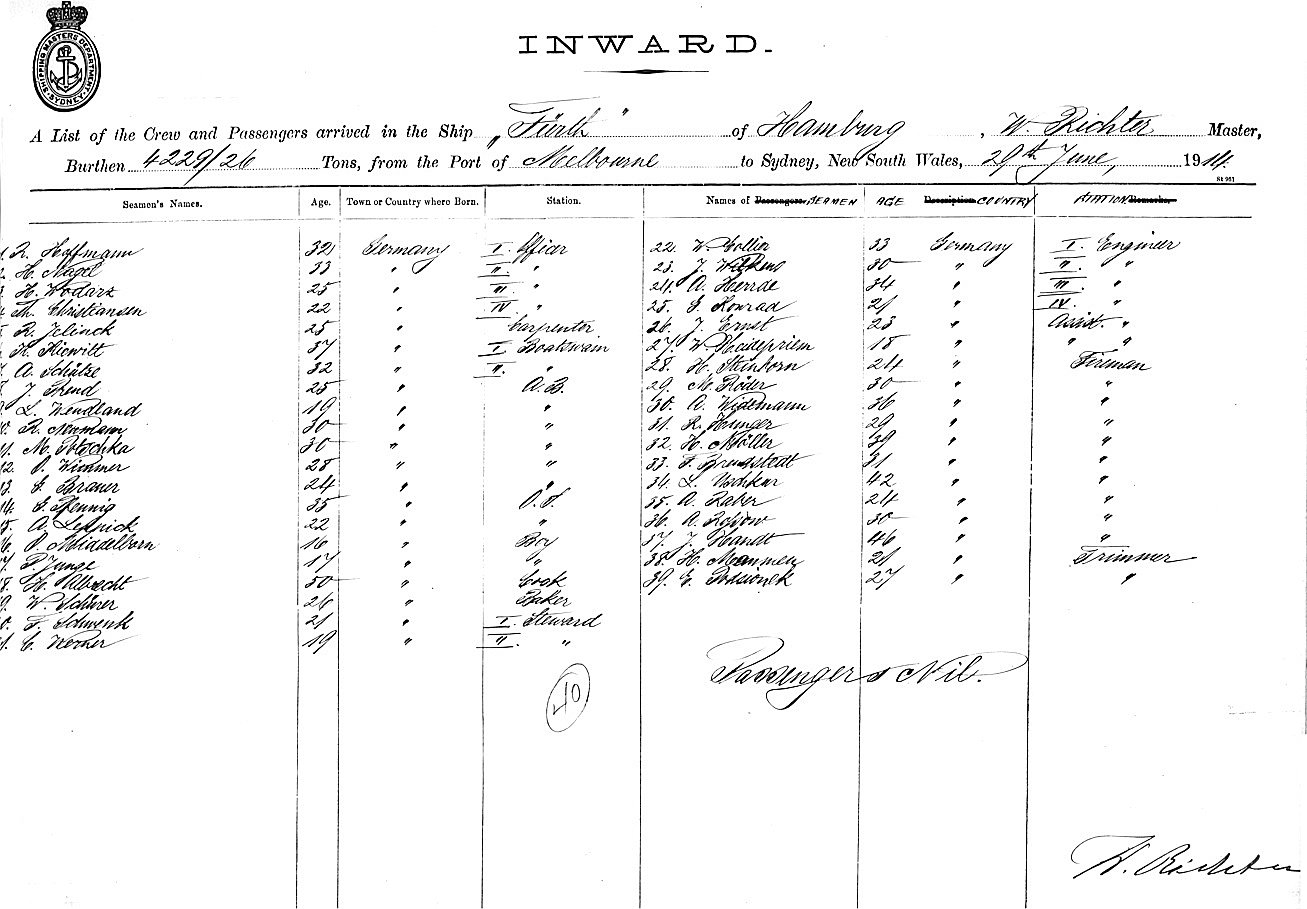 SHIPPING MASTERS DEPARTMENT
SYDNEY
INWARD.
A List of the Crew and Passengers arrived in the Ship „Fürth" of Hamburg, W. Richter Master,
Burthen 4229/26 Tons, from the Port of Melbourne to Sydney, New South Wales, 29th June, 1914.
St 961
Seamen's Names. Age. Town or Country where Born. Station. Names of Passengers. SEAMEN AGE Description COUNTRY STATION Remarks
1. R. Hoffmann 32 Germany I. Officer 22. W. 33 Germany I. Engineer
2. H. Nagel 33 " II. " 23. J. 30 " II. "
3. H. Wodarz 25 " III. " 24. A. Herrde 34 " III. "
4. Th. Christiansen 22 " IV. " 25. G. Konrad 21 " IV. "
5. R. Jelinek 25 " Carpenter 26. J. Ernst 23 " Assist. "
6. K. Kiewitt 37 " I. Boatswain 27. W. Heidepriem 18 " " "
7. A. Schätze 32 " II. " 28. H. Steinborn 24 " Fireman
8. J. 25 " A.B. 29. M. Röder 30 " "
9. L. Wendland 19 " " 30. A. Widemann 36 " "
10. R. Neumann 30 " " 31. R. Hunger 29 " "
11. M. Potschka 30 " " 32. H. Möller 39 " "
12. P. Wimmer 28 " " 33. F. Brendstedt 31 " "
13. G. Brauer 24 " " 34. L. 42 " "
14. G. Pfennig 35 " O.S. 35. A. Raber 24 " "
15. A. Leppick 22 " " 36. A. Rossow 30 " "
16. P. Middelborn 16 " Boy 37. J. Handt 46 " "
17. P. Junge 17 " " 38. H. Mammen 21 " Trimmer
18. H. Albrecht 50 " Cook 39. E. 27 " "
19. W. Schürer 26 " Baker
20. F. Schwenk 21 " I. Steward
21. C. Werner 19 " II. "
Passengers Nil.
40
W. Richter